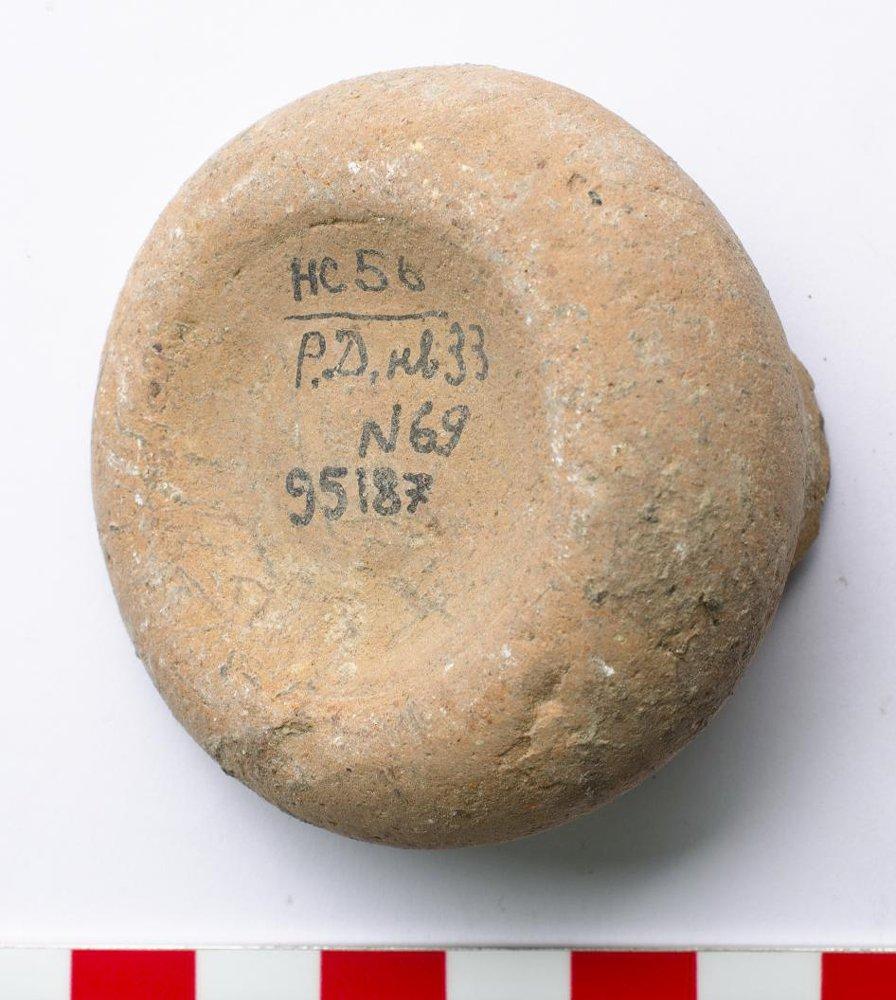 HC56
P.D. кв33
N69
95187